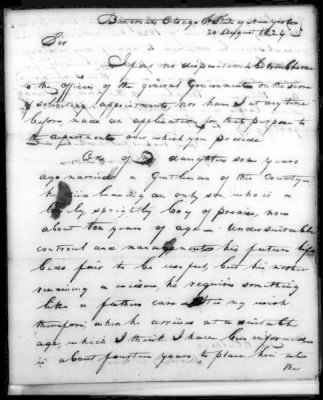 Otsego State of New York
20 August 1824
Sir
I have no disposition to trouble
the officers of the general Government on the score
of soliciting appointments, nor have I at any time
before, made an application for that purpose to
the department over which you preside
One of daughters some years
ago married a Gentleman of this County
leaving an only son who is a
lively, sprightly boy of promise, now
about ten years of age. Under suitable
controul and management his future life
bids fair to be useful, but his mother
remaining a widow he requires something
like a fathers care It is my wish
therefore when he arrives at a suitable
age, which I think I have been informed
is about fourteen years, to place him
the